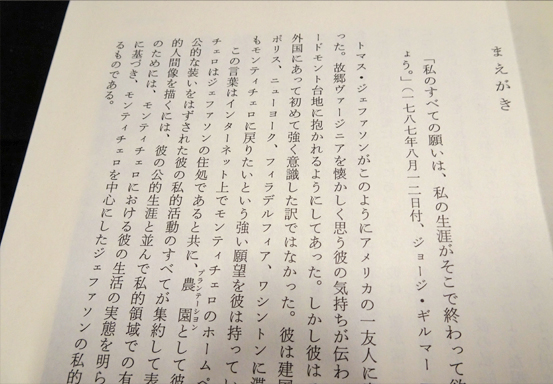 まえがき
「私のすべての願いは、私の生涯がそこで終わって欲
ょう。」(一七八七年八月一二日付、ジョージ・ギルマー
トマス・ジェファソンがこのようにアメリカの一友人に
った。故郷ヴァージニアを懐かしく思う彼の気持ちが伝わ
ードモント台地に抱かれるようにしてあった。しかし彼は
外国にあって初めて強く意識した訳ではなかった。彼は建国
ポリス、ニューヨーク、フィラデルフィア、ワシントンに滞
もモンティチェロに戻りたいという強い願望を彼は持ってい
この言葉はインターネット上でモンティチェロのホームペ
チェロはジェファソンの住処であると共に、農園プランテーションとして彼
公的な装いをはずされた彼の私的活動のすべてが集約して表
的人間像を描くには、彼の公的生涯と並んで私的領域での有
のためには、モンティチェロにおける彼の生活の実態を明ら
に基づき、モンティチェロを中心にしたジェファソンの私的
るものである。